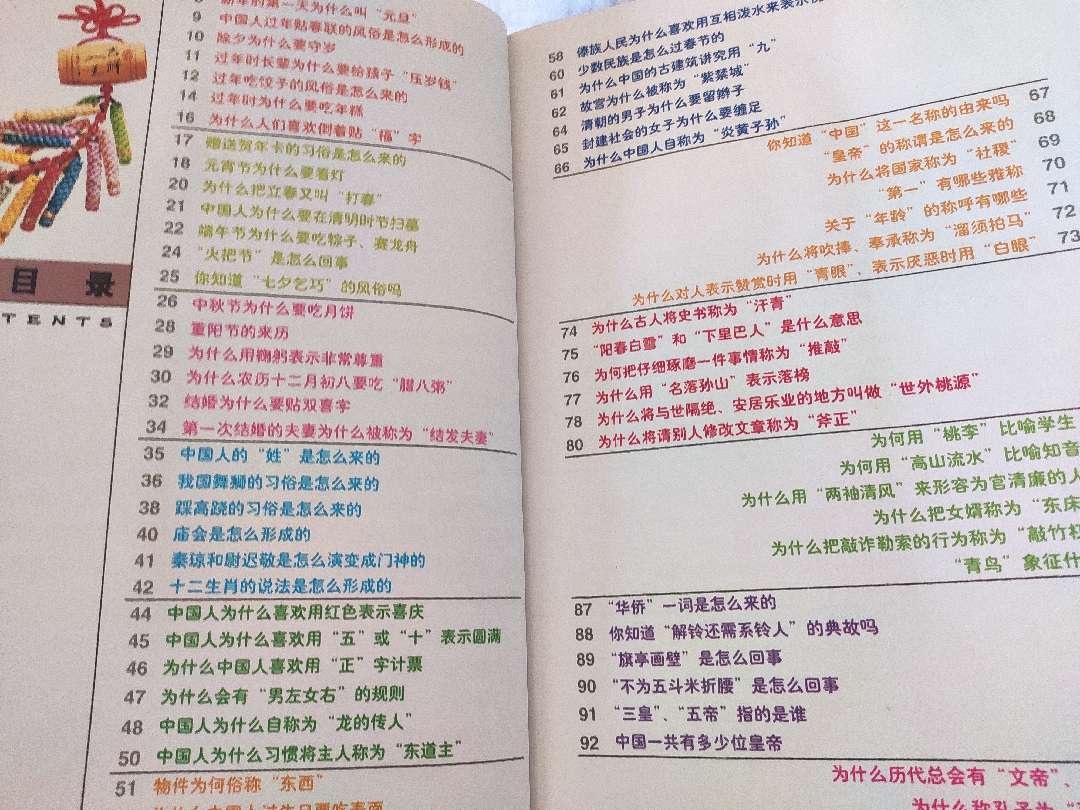 8 新年的第一天为什么叫“元旦”
9 中国人过年贴春联的风俗是怎么形成的
10 除夕为什么要守岁
11 过年时长辈为什么要给孩子“压岁钱”
12 过年吃饺子的风俗是怎么来的
14 过年时为什么要吃年糕
16 为什么人们喜欢倒着贴“福”字
17 赠送贺年卡的习俗是怎么来的
18 元宵节为什么要看灯
20 为什么把立春又叫“打春”
21 中国人为什么要在清明时节扫墓
22 端午节为什么要吃粽子、赛龙舟
24 “火把节”是怎么回事
25 你知道“七夕乞巧”的风俗吗
26 中秋节为什么要吃月饼
28 重阳节的来历
29 为什么用鞠躬表示非常尊重
30 为什么农历十二月初八要吃“腊八粥”
32 结婚为什么要贴双喜字
34 第一次结婚的夫妻为什么被称为“结发夫妻”
35 中国人的“姓”是怎么来的
36 我国舞狮的习俗是怎么来的
38 踩高跷的习俗是怎么来的
40 庙会是怎么形成的
41 秦琼和尉迟敬是怎么演变成门神的
42 十二生肖的说法是怎么形成的
44 中国人为什么喜欢用红色表示喜庆
45 中国人为什么喜欢用“五”或“十”表示圆满
46 为什么中国人喜欢用“正”字计票
47 为什么会有“男左女右”的规则
48 中国人为什么自称为“龙的传人”
50 中国人为什么习惯将主人称为“东道主”
51 物件为何俗称“东西”
为什么中国人过生日要吃寿面
目录
TENTS
58 傣族人民为什么喜欢用互相泼水来表示祝
60 少数民族是怎么过春节的
61 为什么中国的古建筑讲究用“九”
62 故宫为什么被称为“紫禁城”
64 清朝的男子为什么要留辫子
65 封建社会的女子为什么要缠足
66 为什么中国人自称为“炎黄子孙”
你知道“中国”这一名称的由来吗 67
“皇帝”的称谓是怎么来的 68
为什么将国家称为“社稷” 69
“第一”有哪些雅称 70
关于“年龄”的称呼有哪些 71
为什么将吹捧、奉承称为“溜须拍马” 72
为什么对人表示赞赏时用“青眼”、表示厌恶时用“白眼” 73
74 为什么古人将史书称为“汗青”
75 “阳春白雪”和“下里巴人”是什么意思
76 为何把仔细琢磨一件事情称为“推敲”
77 为什么用“名落孙山”表示落榜
78 为什么将与世隔绝、安居乐业的地方叫做“世外桃源”
80 为什么将请别人修改文章称为“斧正”
为何用“桃李”比喻学生
为何用“高山流水”比喻知音
为什么用“两袖清风”来形容为官清廉的人
为什么把女婿称为“东床
为什么把敲诈勒索的行为称为“敲竹杠
“青鸟”象征什
87 “华侨”一词是怎么来的
88 你知道“解铃还需系铃人”的典故吗
89 “旗亭画壁”是怎么回事
90 “不为五斗米折腰”是怎么回事
91 “三皇”、“五帝”指的是谁
92 中国一共有多少位皇帝
为什么历代总会有“文帝”、
为什么称孔子为